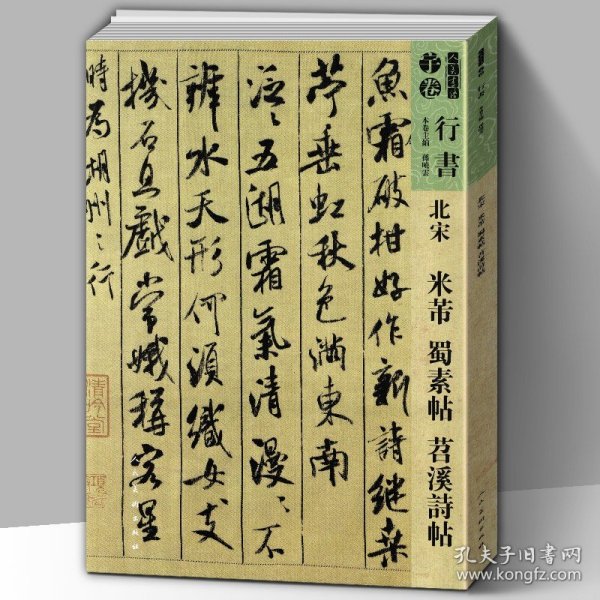 行書
本卷主編 孫曉雲
北宋 米芾 蜀素帖 苕溪詩帖
魚霜破柑好作新詩継桑
苧垂虹秋色滿東南
泛〻五湖霜氣清漫〻不
辨水天形何須織女支
機石且戲常娥稱客星
時為湖州之行
清吟堂
人民美術出版社
孔夫子旧书网
www.kongfz.com